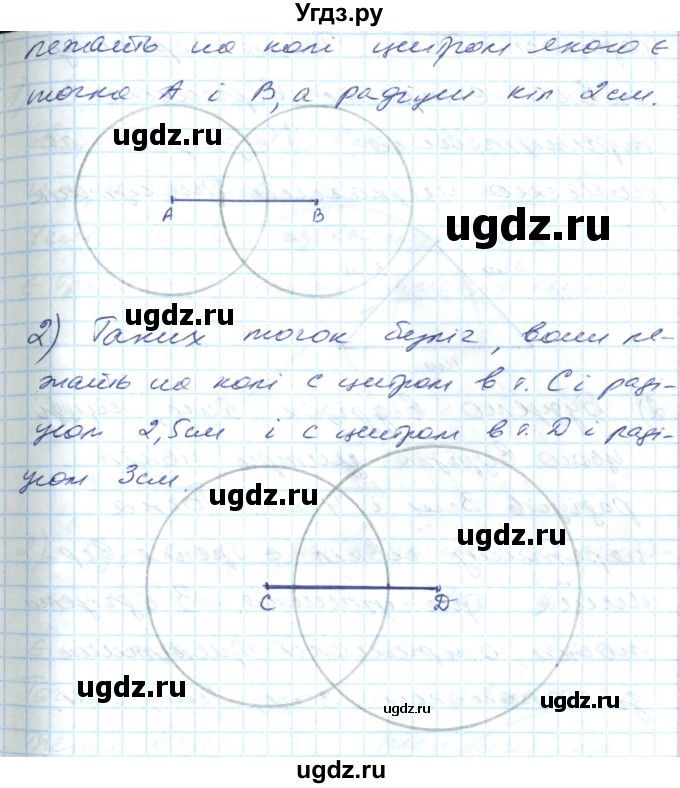 Угдз.ру
лежать на колі центром якого є
точка А і В, а радіуси кіл 2см.
ugdz.ru
ugdz.ru
А В
ugdz.ru
2) Таких точок безліч, вони ле-
жать на колі с центром в т. С і раді-
усом 2,5см і с центром в т. D і раді-
усом 3см.
ugdz.ru
ugdz.ru
С D
ugdz.ru
ugdz.ru
ugdz.ru
ugdz.ru